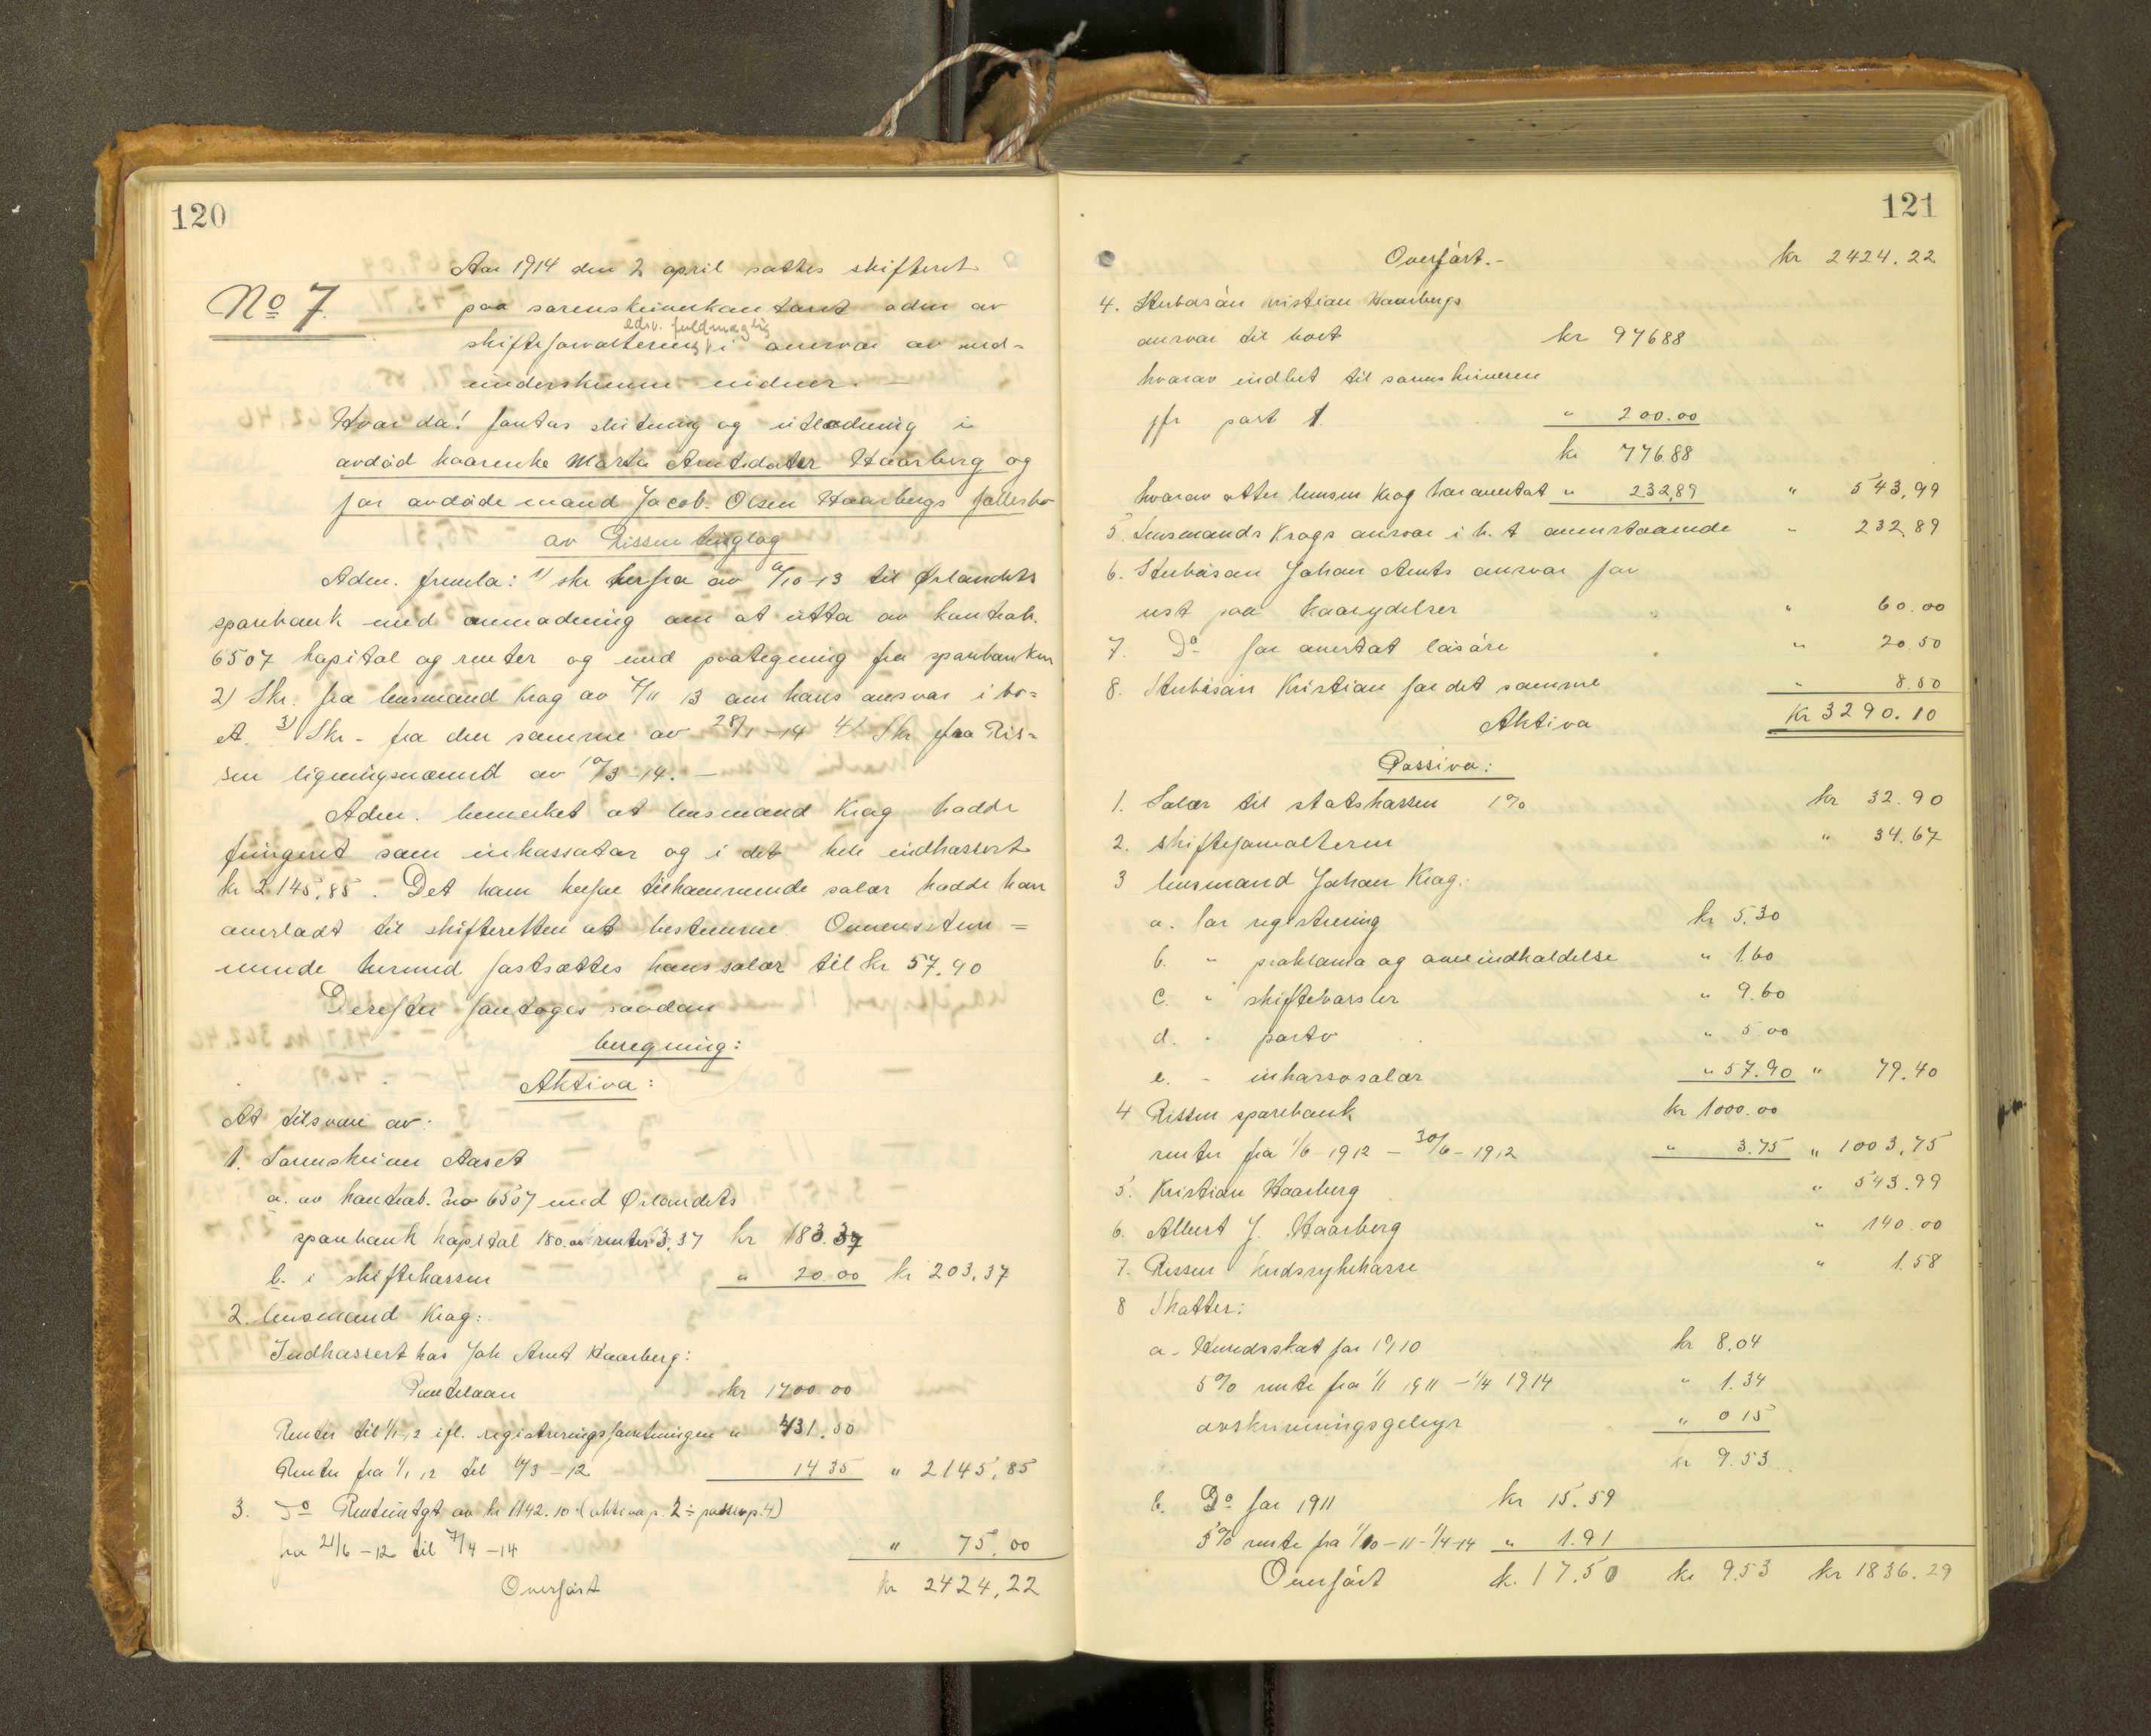 120
Aar 1914 den 2 april sattes skifteret
No 7.
paa sorenskriverkontoret adm av
edsv. fuldmægtig
skifteforvalteren i anervær av med-
underskrevne vidner. —
Hvor da! fortas slutning og utlodning i
avdød kaarenke Marta Arntsdatter Haarberg og
før avdøde mand Jacob Olsen Haarbergs fællesbo
av Rissen tinglag
Adm. fremla: 1) skr herfra av /10-13 til Ørlandets
sparebank med anmodning om at utta av kontrab.
6507 kapital og renter og med paategning fra sparebanken
2) Skr. fra lensmand Krag av 7/11 13 om hans ansvar i bo=
et. 3) Skr - fra den samme av 28/1-14 4) Skr fra Ris=
sen ligningsnævnd av 10/3-14. —
Adm. bemerket at lensmand Krag hadde
fungeret som inkassator og i det hele indkassert
kr 2145,85. Det ham herfor tilkommende salær hadde han
overladt til skifteretten at bestemme. Overensstem=
mende hermed fastsættes hans salær til kr 57,90
Derefter foretoges saadan
beregning:
Aktiva:
At tilsvare av:
1. Sorenskriver Aaset
a. av kontrab. no 6507 med Ørlandets
sparebank kapital 180.00 renter 3,37 kr 183.37
b. i skiftekassen " 20.00 kr 203,37
2. lensmand Krag:
Indkassert hos Joh Arnt Haarberg:
Pantelaan kr 1700.00
Renter til 1/1-12 ifl. registreringsforretningen " 431.50
Renter fra 1/1 12 til /3-12 14 35 " 2145,85
3. Do Renteindtgt av kr 1142.10 (aktiva p. 2 ÷ passiva p. 4)
fra 21/6-12 til 7/4-14 " 75,00
Overført kr 2424,22
121
Overført.- kr 2424.22
4. Sterbøsøn Kristian Haarbergs
ansvar til boet kr 97688
hvorav indbet til sorenskriveren
jfr post 1. " 200.00
kr 776.88
hvorav atter lensm Krag har overtat " 232,89 " 543,99
5. Lensmands Krags ansvar i h. t ovenstaaende " 232,89
6. Sterbøsøn Johan Arnts ansvar for
rest paa kaarydelser " 60.00
7. Do for overtat løsøre " 20.50
8. Sterbøsøn Kristian for det samme " 8.50
Aktiva Kr 3290.10
Passiva:
1. Salær til statskassen 1% kr 32.90
2. skifteforvalteren " 34.67
3 lensmand Johan Krag:
a. for registrering kr 5.30
b. " proklama og aveindholdelse " 1.60
c. " skiftevarsler " 9.60
d. " porto " 5.00
e. " inkassosalær " 57.90 " 79.40
4 Rissen sparebank kr 1000.00
renter fra 1/6 1912 - 30/6-1912 " 3.75 " 1003,75
5. Kristian Haarberg " 543.99
6. Albert J. Haarberg " 140.00
7. Rissen kredssykekasse " 1.58
8 Skatter:
a. Herredsskat for 1910 kr 8.04
5% rente fra 1/1 1911 - 1/4 1914 " 1.34
avskrivningsgebyr " 0 15
kr 9.53
b. Do for 1911 kr 15.59
5% rente fra 1/10-11-1/4-14 " 1.91
Overført k. 17.50 kr 9.53 kr 1836.29